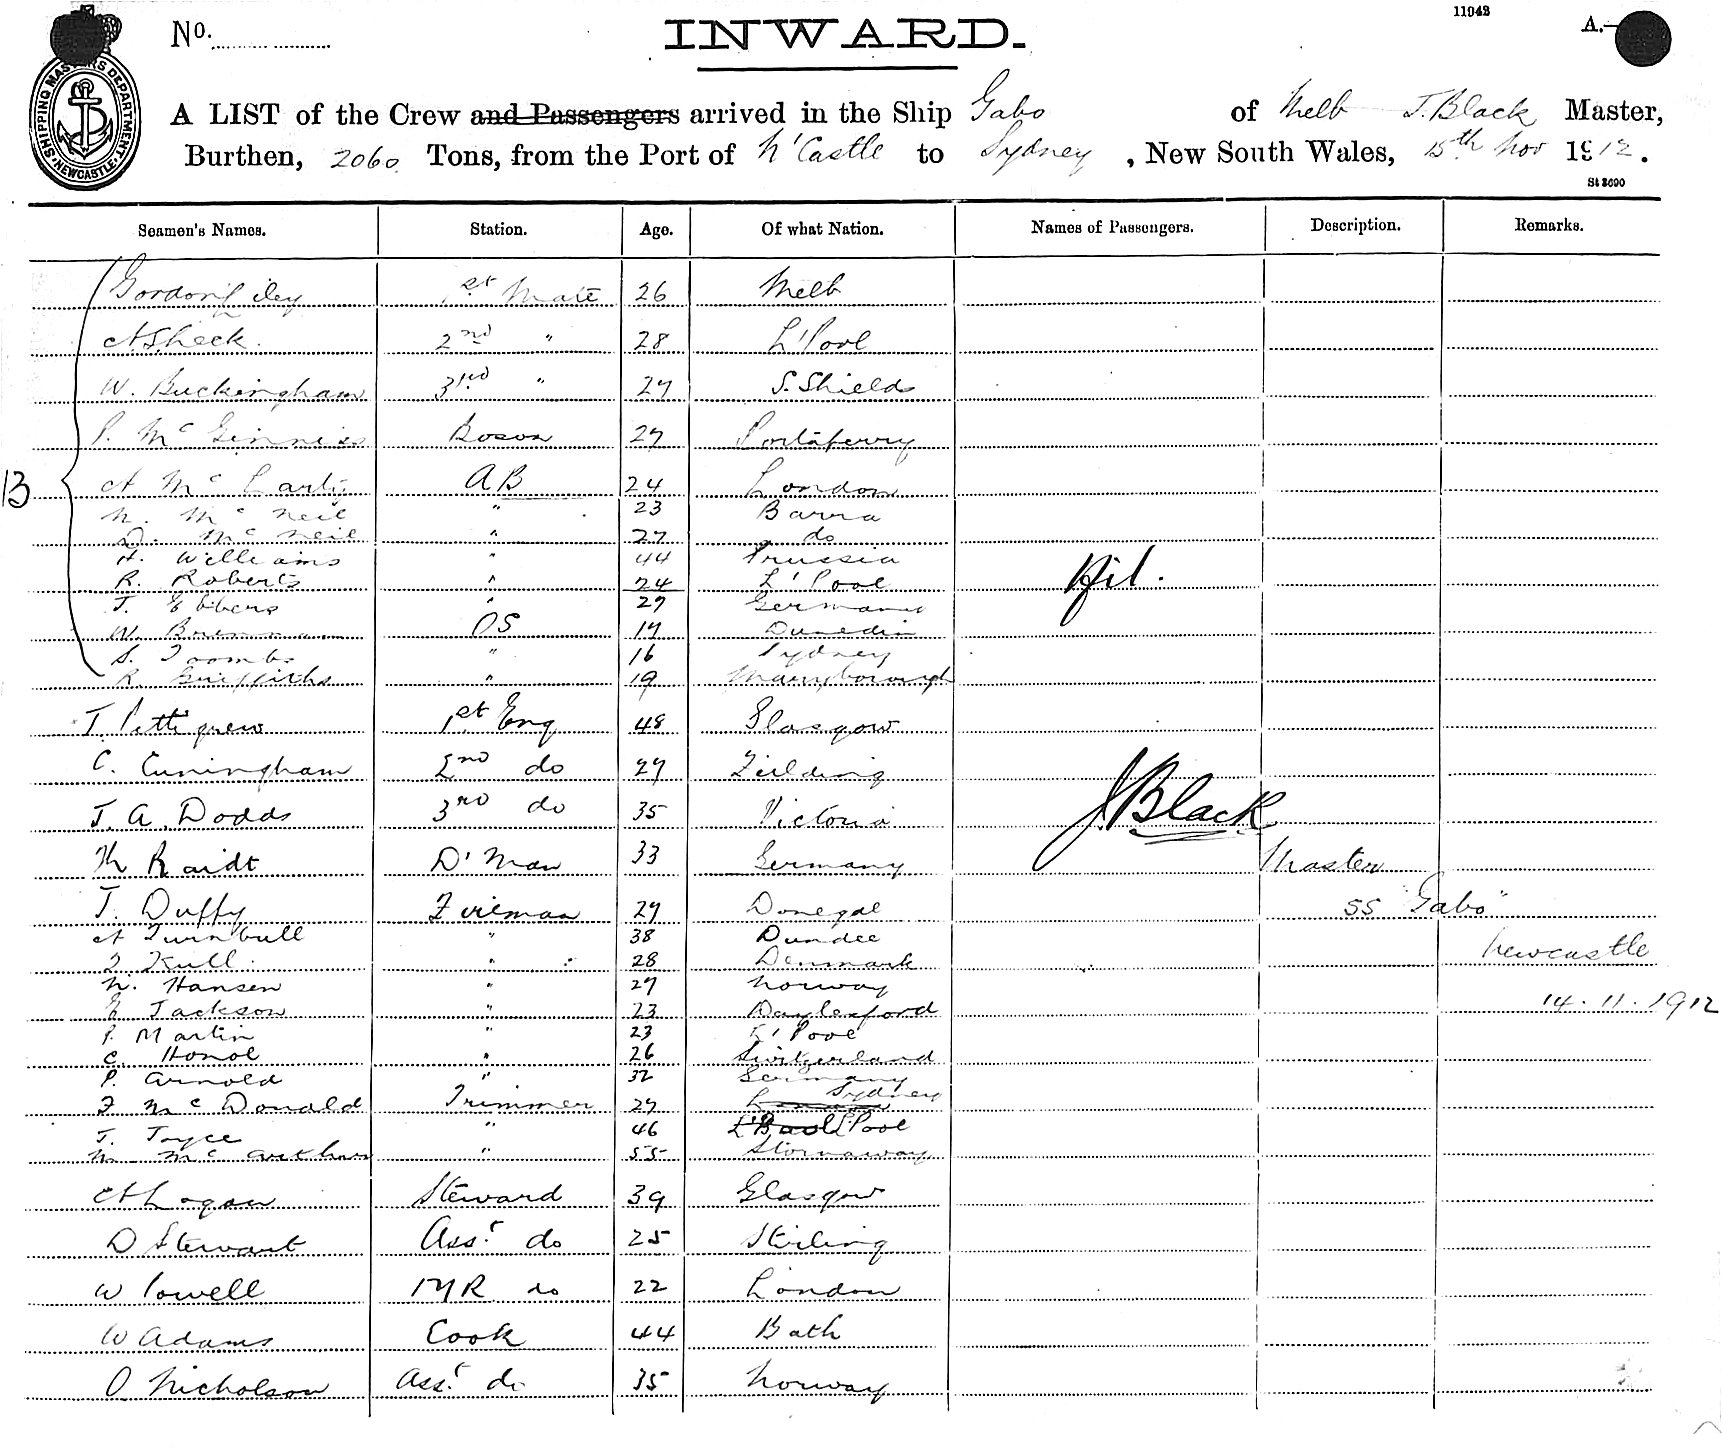 11942
No. INWARD. A.—
SHIPPING MASTERS DEPARTMENT · NEWCASTLE ·
A LIST of the Crew and Passengers arrived in the Ship Gabo of Melb J. Black Master,
Burthen, 2060 Tons, from the Port of N'Castle to Sydney, New South Wales, 15th Nov 1912.
St 3690
Seamen's Names. Station. Age. Of what Nation. Names of Passengers. Description. Remarks.
Gordon 1st Mate 26 Melb
A Sheck 2nd " 28 L'Pool
W. Buckingham 3rd " 27 S. Shields
P. McGinniss Bosun 27 Portaferry
13 A McCarty AB 24 London
N. McNeil " 23 Barra
D. McNeil " 27 do
H. Williams " 44 Prussia
R. Roberts " 24 L'Pool Nil.
J. Ebbers " 29 Germany
W. OS 19 Dunedin
S. Toombs " 16 Sydney
R. Griffiths " 19
J. Pettigrew 1st Eng 48 Glasgow
C. Cuningham 2nd do 27
J. A. Dodds 3rd do 35 Victoria J. Black
M Raidt D'Man 33 Germany Master
J. Duffy Fireman 29 Donegal SS "Gabo"
A Turnbull " 38 Dundee
J. Kull " 28 Denmark Newcastle
N. Hansen " 27 Norway
E Jackson " 23 Daylesford 14.11.1912
P. Martin " 23 L'Pool
C. Honol " 26 Switzerland
P. Arnold " 32 Germany
F McDonald Trimmer 27 Sydney
J. Joyce " 46 L'Pool
M McArthur " 55 Stornaway
A Logan Steward 39 Glasgow
D Stewart Asst do 25 Stirling
W Powell MR do 22 London
W Adams Cook 44 Bath
O Nicholson Asst do 35 Norway